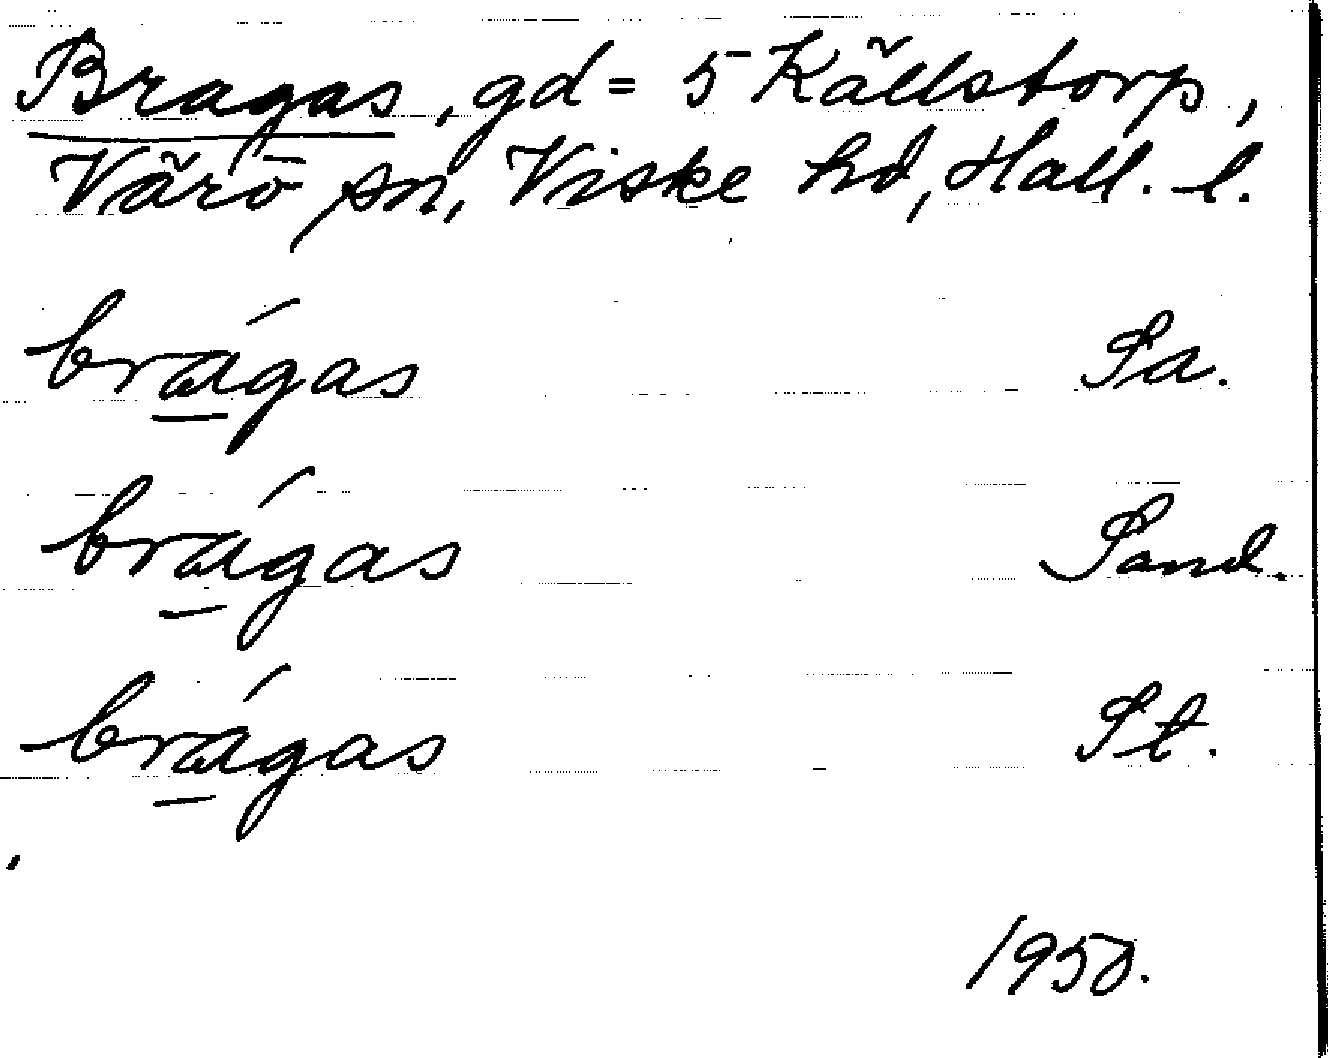 Bragas, gd = 5 Källstorp,
Värö sn, Viske hd, Hall. l.
brágas Sa.
brágas Sand.
brágas St.
1950.